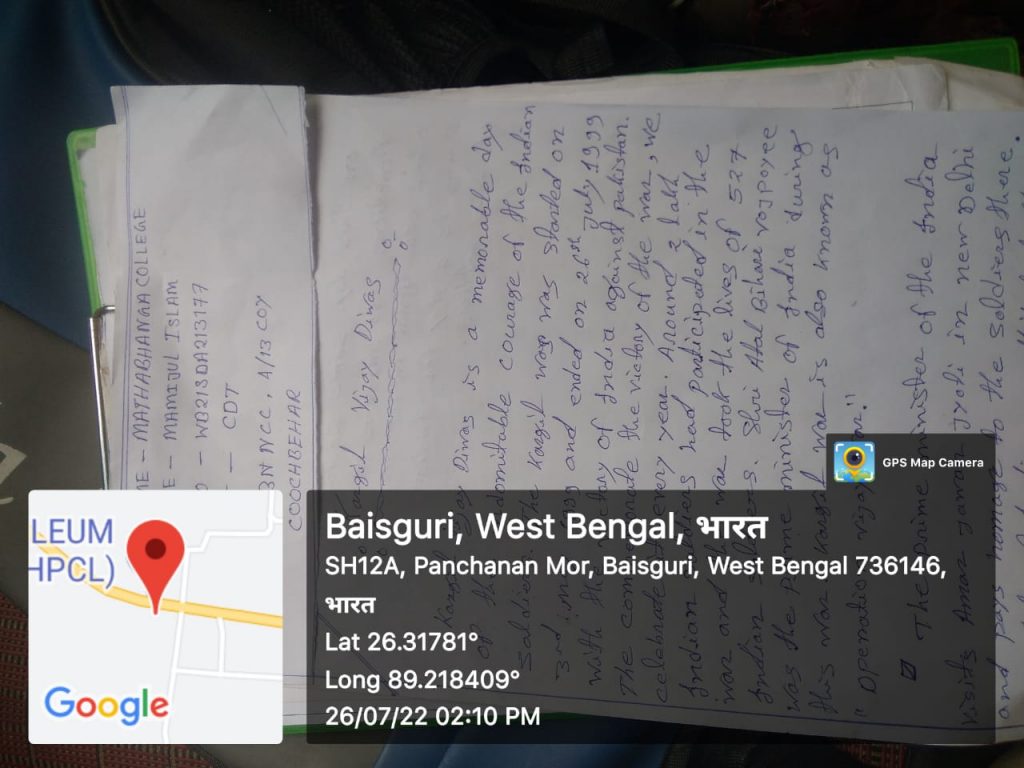 ME - MATHABHANGA COLLEGE
E - MAMIJUL ISLAM
O - WB21SDA213177
- CDT
BN NCC, A/13 COY
COOCHBEHAR
Kargil Vijay Diwas
Diwas is a memorable day
domitable courage of the Indian
Soldiers. The Kargil war was started on
3rd and ended on 26th July 1999
with the of India against Pakistan.
The commemorate the victory of the war, we
celebrate it every year. Around 2 lakh
Indian had participated in the
war and the war took the lives of 527
Indian Shri Atal Bihari vajpayee
was the Prime minister of India during
this war. Kargil war is also known as
"Operation Vijay"
The prime minister of the India
visits Amar Jawan Jyoti in new Delhi
and pays homage to the Soldiers there.
GPS Map Camera
LEUM
HPCL)
Google
Baisguri, West Bengal, भारत
SH12A, Panchanan Mor, Baisguri, West Bengal 736146,
भारत
Lat 26.31781°
Long 89.218409°
26/07/22 02:10 PM